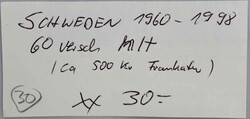 SCHWEDEN 1960-1998
60 versch MH
(ca 500 Kr Frankatur)
30 xx 30=